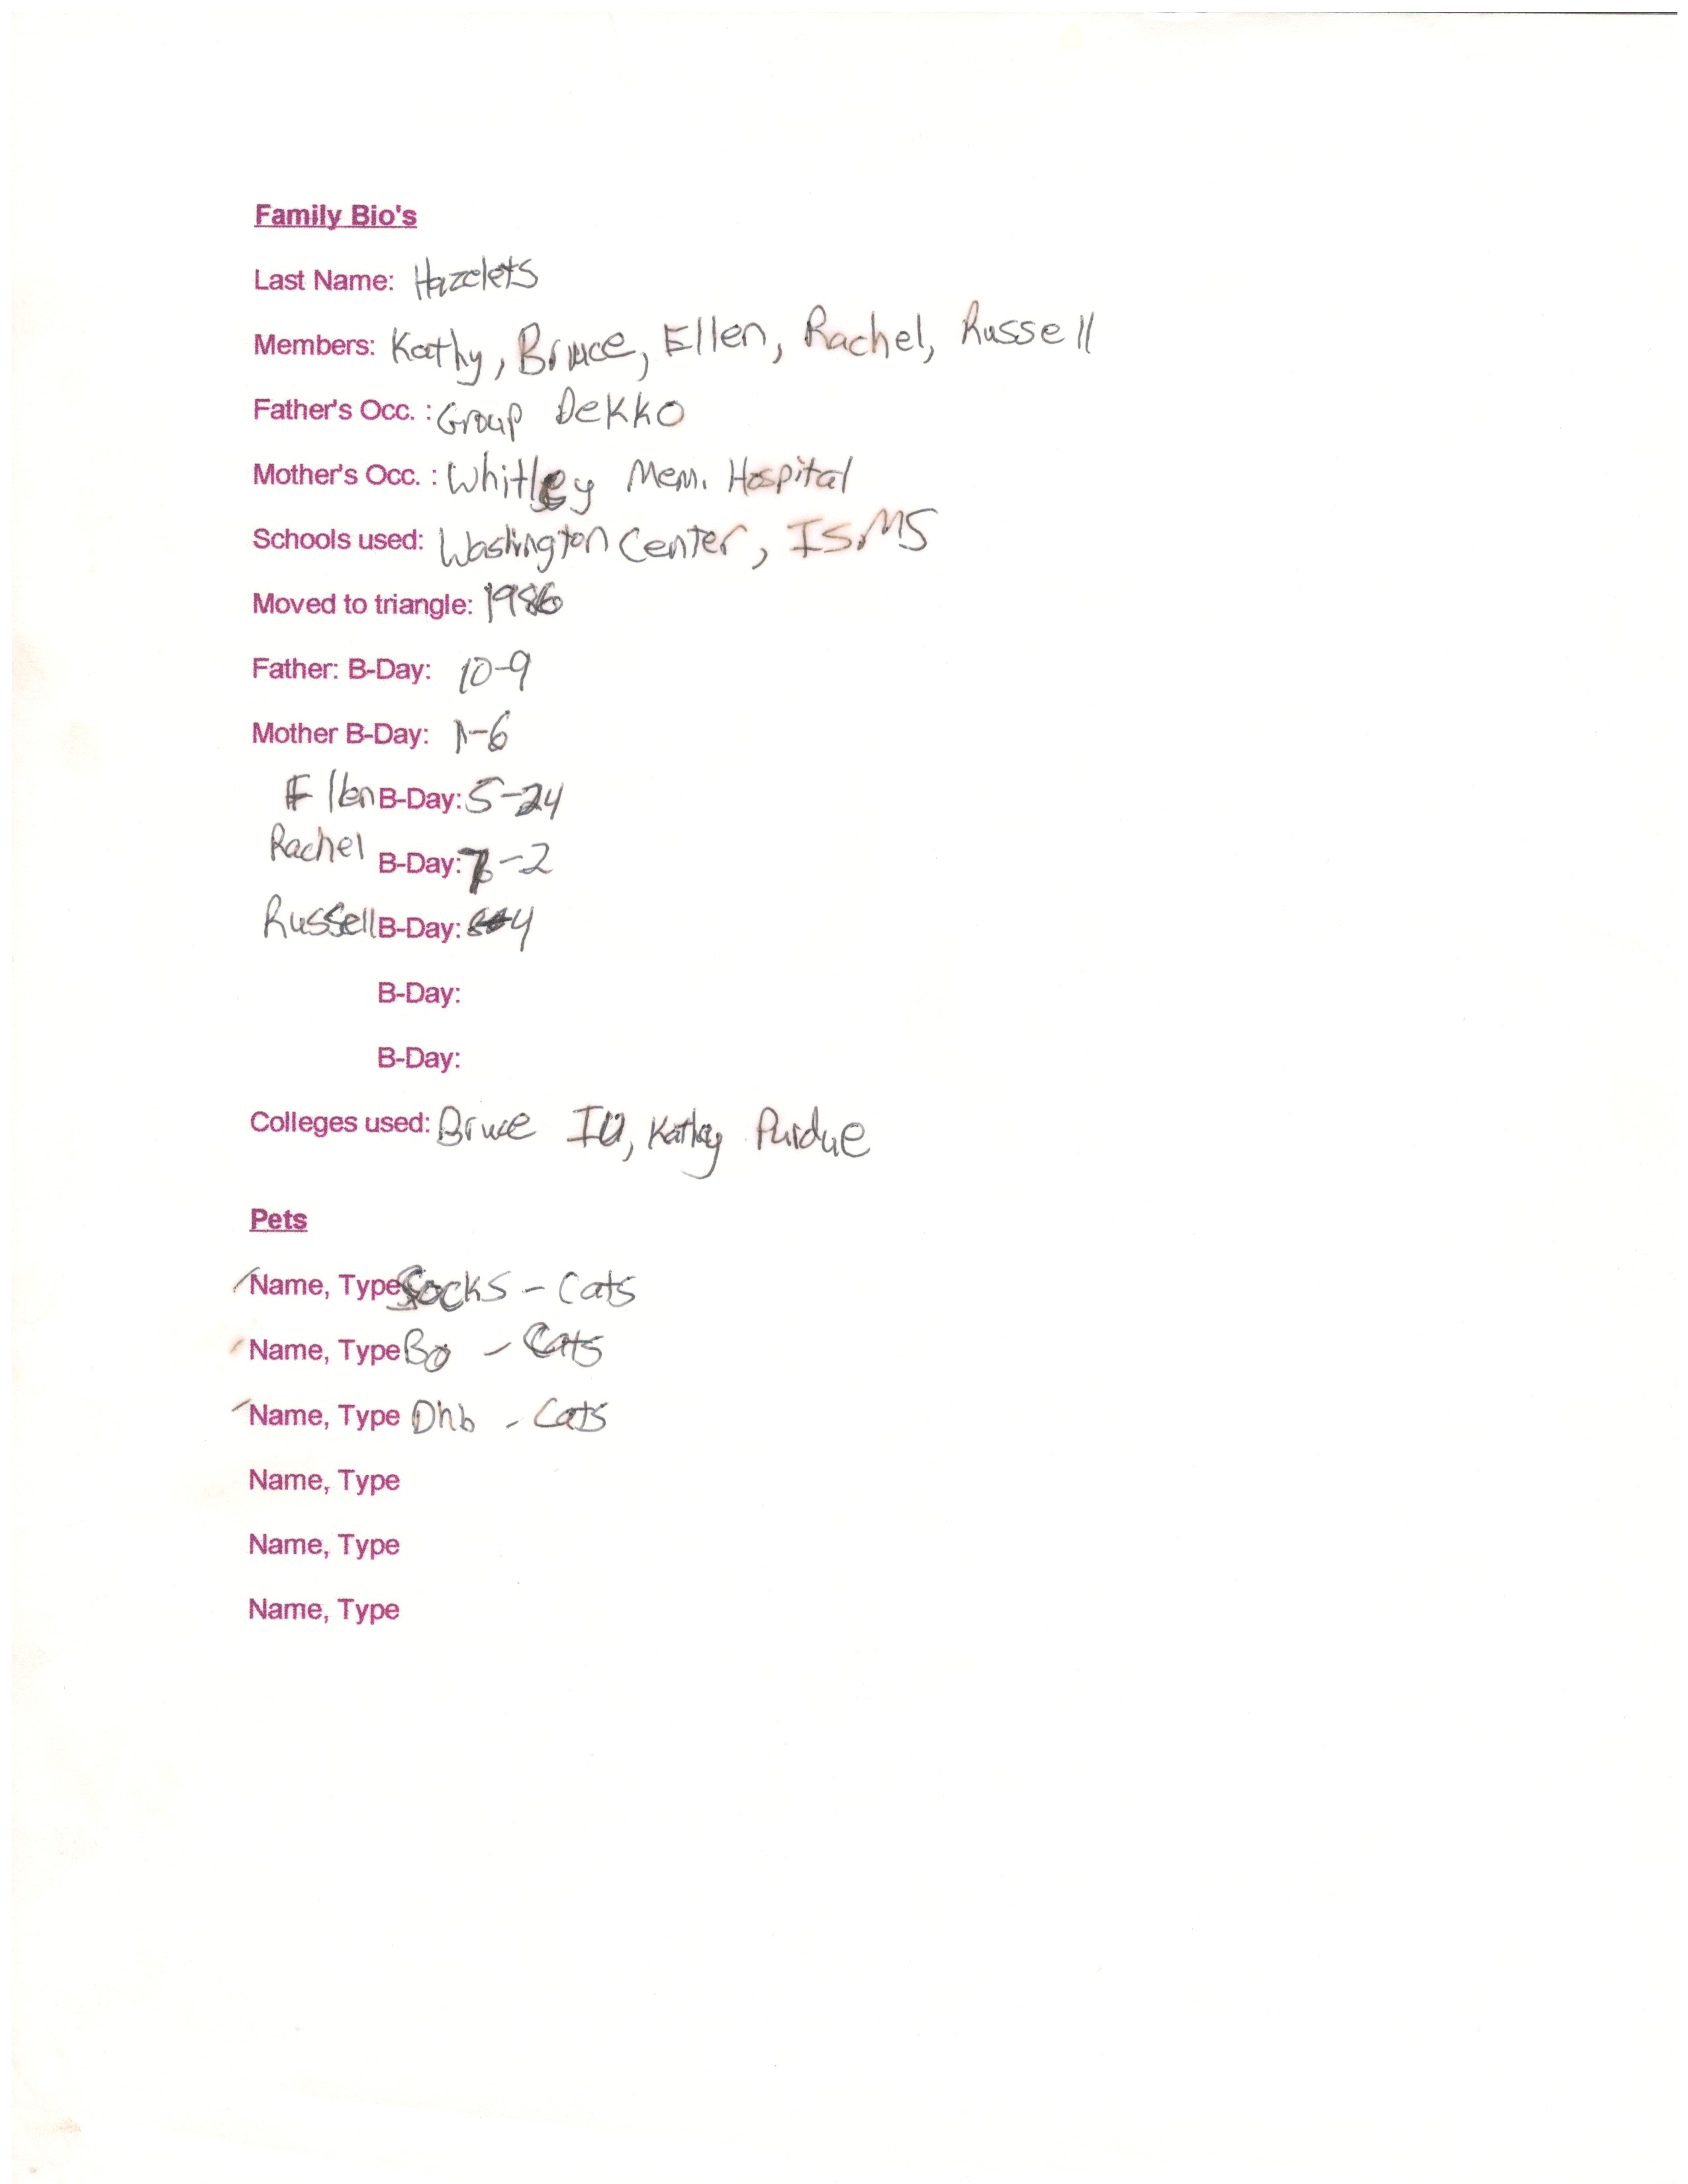 Family Bio's
Last Name: Hazelets
Members: Kathy, Bruce, Ellen, Rachel, Russell
Father's Occ. : Group Dekko
Mother's Occ. : Whitley Mem. Hospital
Schools used: Washington Center, ISMS
Moved to triangle: 1986
Father: B-Day: 10-9
Mother B-Day: 1-6
Ellen B-Day: 5-24
Rachel B-Day: 7-2
Russell B-Day: 8-4
B-Day:
B-Day:
Colleges used: Bruce IU, Kathy Purdue
Pets
Name, Type Socks - Cats
Name, Type Bo - Cats
Name, Type - Cats
Name, Type
Name, Type
Name, Type